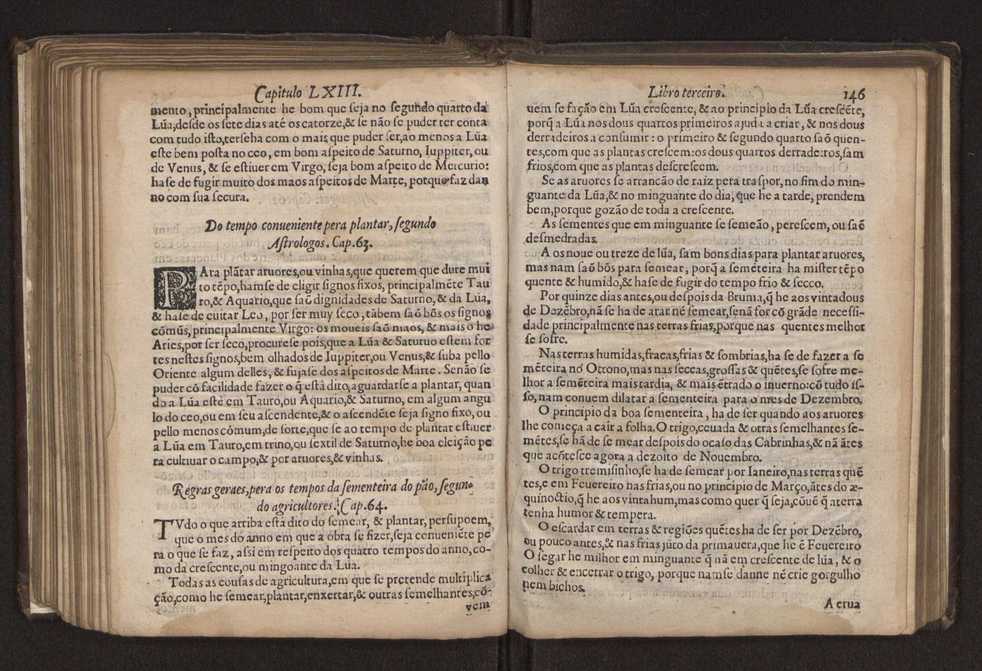 Capitulo LXIII.
mento, principalmente he bom que seja no segundo quarto da
Lũa, desde os sete dias atè os catorze, & se não se puder ter conta
com tudo isto, terseha com o mais que puder ser, ao menos a Lũa
este bem posta no ceo, em bom aspeito de Saturno, Iuppiter, ou
de Venus, & se estiuer em Virgo, seja bom aspeito de Mercurio:
hase de fugir muito dos maos aspeitos de Marte, porque faz dan
no com sua secura.
Do tempo conueniente pera plantar, segundo
Astrologos. Cap. 63.
PAra plãtar aruores, ou vinhas, que querem que dure mui
to tẽpo, hamse de eligir signos fixos, principalmẽte Tau
ro, & Aquario, que saõ dignidades de Saturno, & da Lũa,
& hase de euitar Leo, por ser muy seco, tãbem saõ bõs os signos
cõmũs, principalmente Virgo: os moueis saõ maos, & mais o he
Aries, por ser seco, procurese pois, que a Lũa & Saturno estem for
tes nestes signos, bem olhados de Iuppiter, ou Venus, & suba pello
Oriente algum delles, & fujase dos aspeitos de Marte. Senão se
puder cõ facilidade fazer o q̃ está dito, aguardarse a plantar, quan
do a Lũa estè em Tauro, ou Aquario, & Saturno, em algum angu
lo do ceo, ou em seu ascendente, & o ascendẽte seja signo fixo, ou
pello menos cõmum, de sorte, que se ao tempo de plantar estiuer
a Lũa em Tauro, em trino, ou sextil de Saturno, he boa eleição pe
ra cultiuar o campo, & por aruores, & vinhas.
Regras geraes, pera os tempos da sementeira do pão, segun-
do agricultores. Cap. 64.
TVdo o que arriba está dito do semear, & plantar, persupoem,
que o mes do anno em que a obra se fizer, seja conueniẽte pe
ra o que se faz, assi em respeito dos quatro tempos do anno, co-
mo da crescente, ou mingoante da Lũa.
Todas as cousas de agricultura, em que se pretende multiplica
ção, como he semear, plantar, enxertar, & outras semelhantes, cõ-
vem
Libro terceiro.
146
uem se fação em Lũa crescente, & ao principio da Lũa crescẽte,
porq̃ a Lũa nos dous quartos primeiros ajuda a criar, & nos dous
derradeiros a consumir: o primeiro & segundo quarto saõ quen-
tes, com que as plantas crescem: os dous quartos derradeiros, sam
frios, com que as plantas descrescem.
Se as aruores se arrancão de raiz pera traspor, no fim do min-
guante da Lũa, & no minguante do dia, que he a tarde, prendem
bem, porque gozão de toda a crescente.
As sementes que em minguante se semeão, perescem, ou saõ
desmedradas.
A os noue ou treze de lũa, sam bons dias para plantar aruores,
mas nam saõ bõs para semear, porq̃ a semẽteira ha mister tẽpo
quente & humido, & hase de fugir do tempo frio & secco.
Por quinze dias antes, ou despois da Bruma, q̃ he aos vintadous
de Dezẽbro, nã se ha de arar nẽ semear, senã for cõ grãde necessi-
dade principalmente nas terras frias, porque nas quentes melhor
se sofre.
Nas terras humidas, fracas, frias & sombrias, ha se de fazer a se
mẽteira no Ottono, mas nas seccas, grossas & quẽtes, se sofre me-
lhor a semẽteira mais tardia, & mais ẽtrado o inuerno: cõ tudo is-
so, nam conuem dilatar a sementeira para o mes de Dezembro.
O principio da boa sementeira, ha de ser quando aos aruores
lhe começa a cair a folha. O trigo, ceuada & outras semelhantes se-
mẽtes, se hã de semear despois do ocaso das Cabrinhas, & nã ãtes
que acõtesce agora a dezoito de Nouembro.
O trigo tremisinho, se ha de semear por Ianeiro, nas terras quẽ
tes, e em Feuereiro nas frias, ou no principio de Março, ãtes do æ-
quinoctio, q̃ he aos vinta hum, mas como quer q̃ seja, cõuẽ q̃ a terra
tenha humor & tempera.
O escardar em terras & regiões quẽtes ha de ser por Dezẽbro,
ou pouco antes, & nas frias jũto da primauera, que he ẽ Feuereiro
O segar he milhor em minguante q̃ nã em crescente de lũa, & o
colher & encerrar o trigo, porque nam se danne nẽ crie gorgulho
nem bichos.
A erua